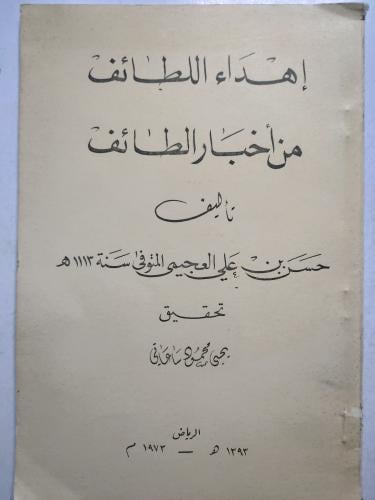 إهداء اللطائف
من أخبار الطائف
تأليف
حسن بن علي العجيمي المتوفى سنة ١١١٣ هـ
تحقيق
يحيى محمود ساعاتي
الرياض
١٣٩٣ هـ — ١٩٧٣ م